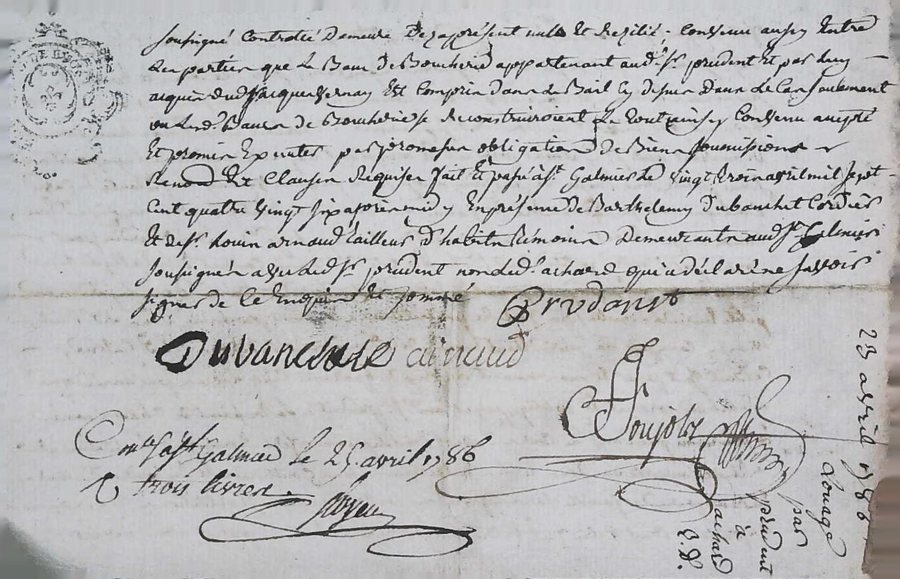 soussigné Controllé Demeure Desapresent nuls Et Rezilié, Convenu ausy Entre
Les parties que Le Banc De Boucherie appartenant aud. Sr prudent Et par luy
aquis dud Jacques Vernay Est Compris dans Le Bail Cy dessus Dans Le Cas seulement
ou Lesd. Bancs de Boucherie se Reconstruiroient Le tout ainsy Convenu accepté
Et promis Executer par promesses obligations De Biens soumissions
Renond. Et Clauses Requises fait Et passé a St. Galmier Le Vingt trois avril mil sept
Cent quatre Vingt six apres midy En présence De Barthelemy Dubanchet Cordier
Et de Sr. Louis arnaud tailleur D'habits témoins Demeurants aud. St. Galmier
soussignés avec Led. Sr. prudent non Led. achard qui a déclaré ne savoir
signer de Ce Enquis Et sommé
Prudanst
Dubanchet arnaud
Conté a St. Galmier le 25 avril 1786
R trois livres
Poujolx
23 avril 1786
Louage
par
prudent
à
achard
E.D.